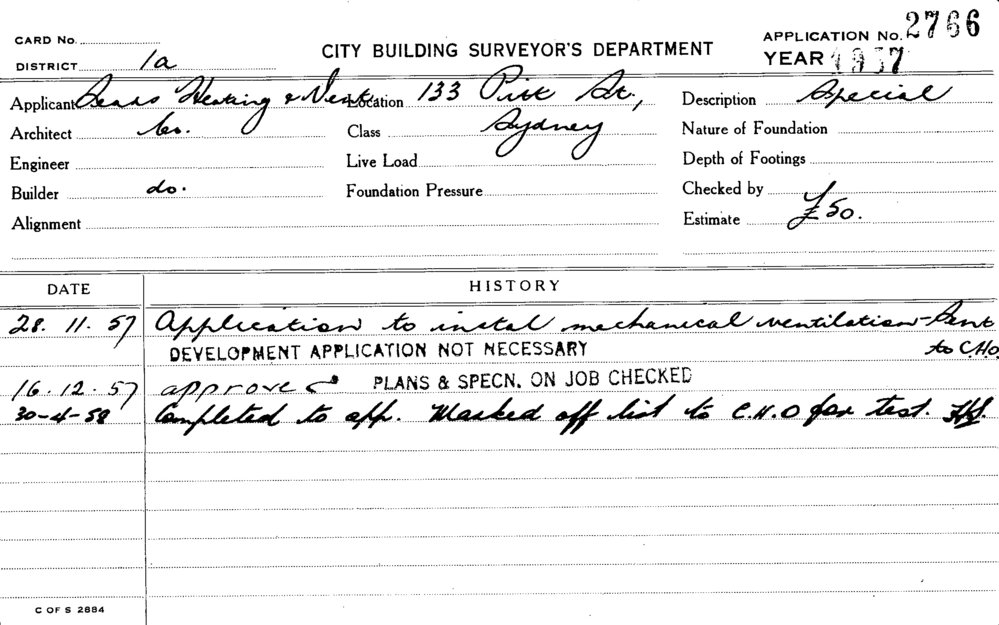 CARD No.
CITY BUILDING SURVEYOR'S DEPARTMENT
APPLICATION No. 2766
DISTRICT 1a
YEAR 1957
Applicant Heating & Vent. Location 133 Pitt St., Description Special
Architect Co. Class Sydney Nature of Foundation
Engineer Live Load Depth of Footings
Builder do. Foundation Pressure Checked by
Alignment Estimate £50.
DATE HISTORY
28. 11. 57 Application to instal mechanical ventilation - Sent
DEVELOPMENT APPLICATION NOT NECESSARY to C.H.O.
16. 12. 57 approved PLANS & SPECN. ON JOB CHECKED
30-4-58 Completed to app. Marked off list to C.H.O for test.
C OF S 2884